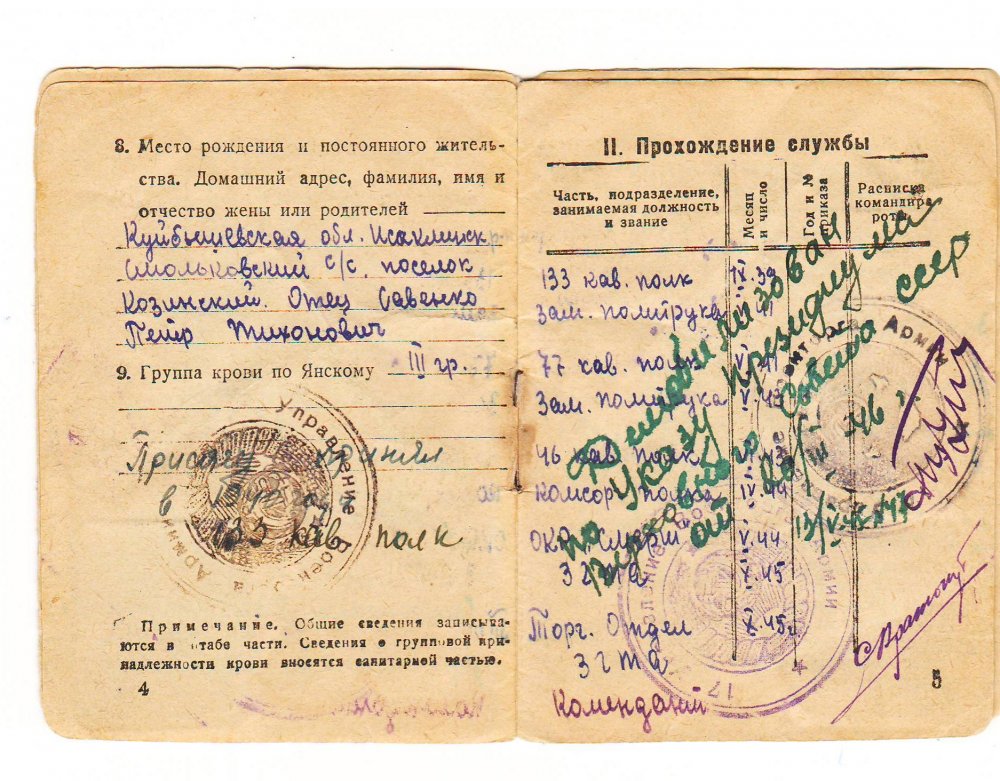 8. Место рождения и постоянного житель-
ства. Домашний адрес, фамилия, имя и
отчество жены или родителей
Куйбышевская обл. Исаклинск
Смольковский с/с. поселок
Козинский. Отец Савенко
Петр Тихонович
9. Группа крови по Янскому III гр.
Присягу принял
в
133 кав. полк
Управление
Примечание. Общие сведения записыва-
ются в штабе части. Сведения о групповой при-
надлежности крови вносятся санитарной частью.
4
II. Прохождение службы
Часть, подразделение,
занимаемая должность
и звание
Месяц
и число
Год и №
приказа
Расписка
командира
роты
133 кав. полк IX.39
Зам. политрука 41
77 кав. полк V.41
Зам. политрука V.43
46 кав. полк
комсорг полка IV.44
ОКР Смерш V.44
3 гта X.45
Торг. Отдел X.45г
3 гта
Комендант
Демобилизован
по Указу Президиума
Верховного Совета СССР
от 46 г.
Армии
5